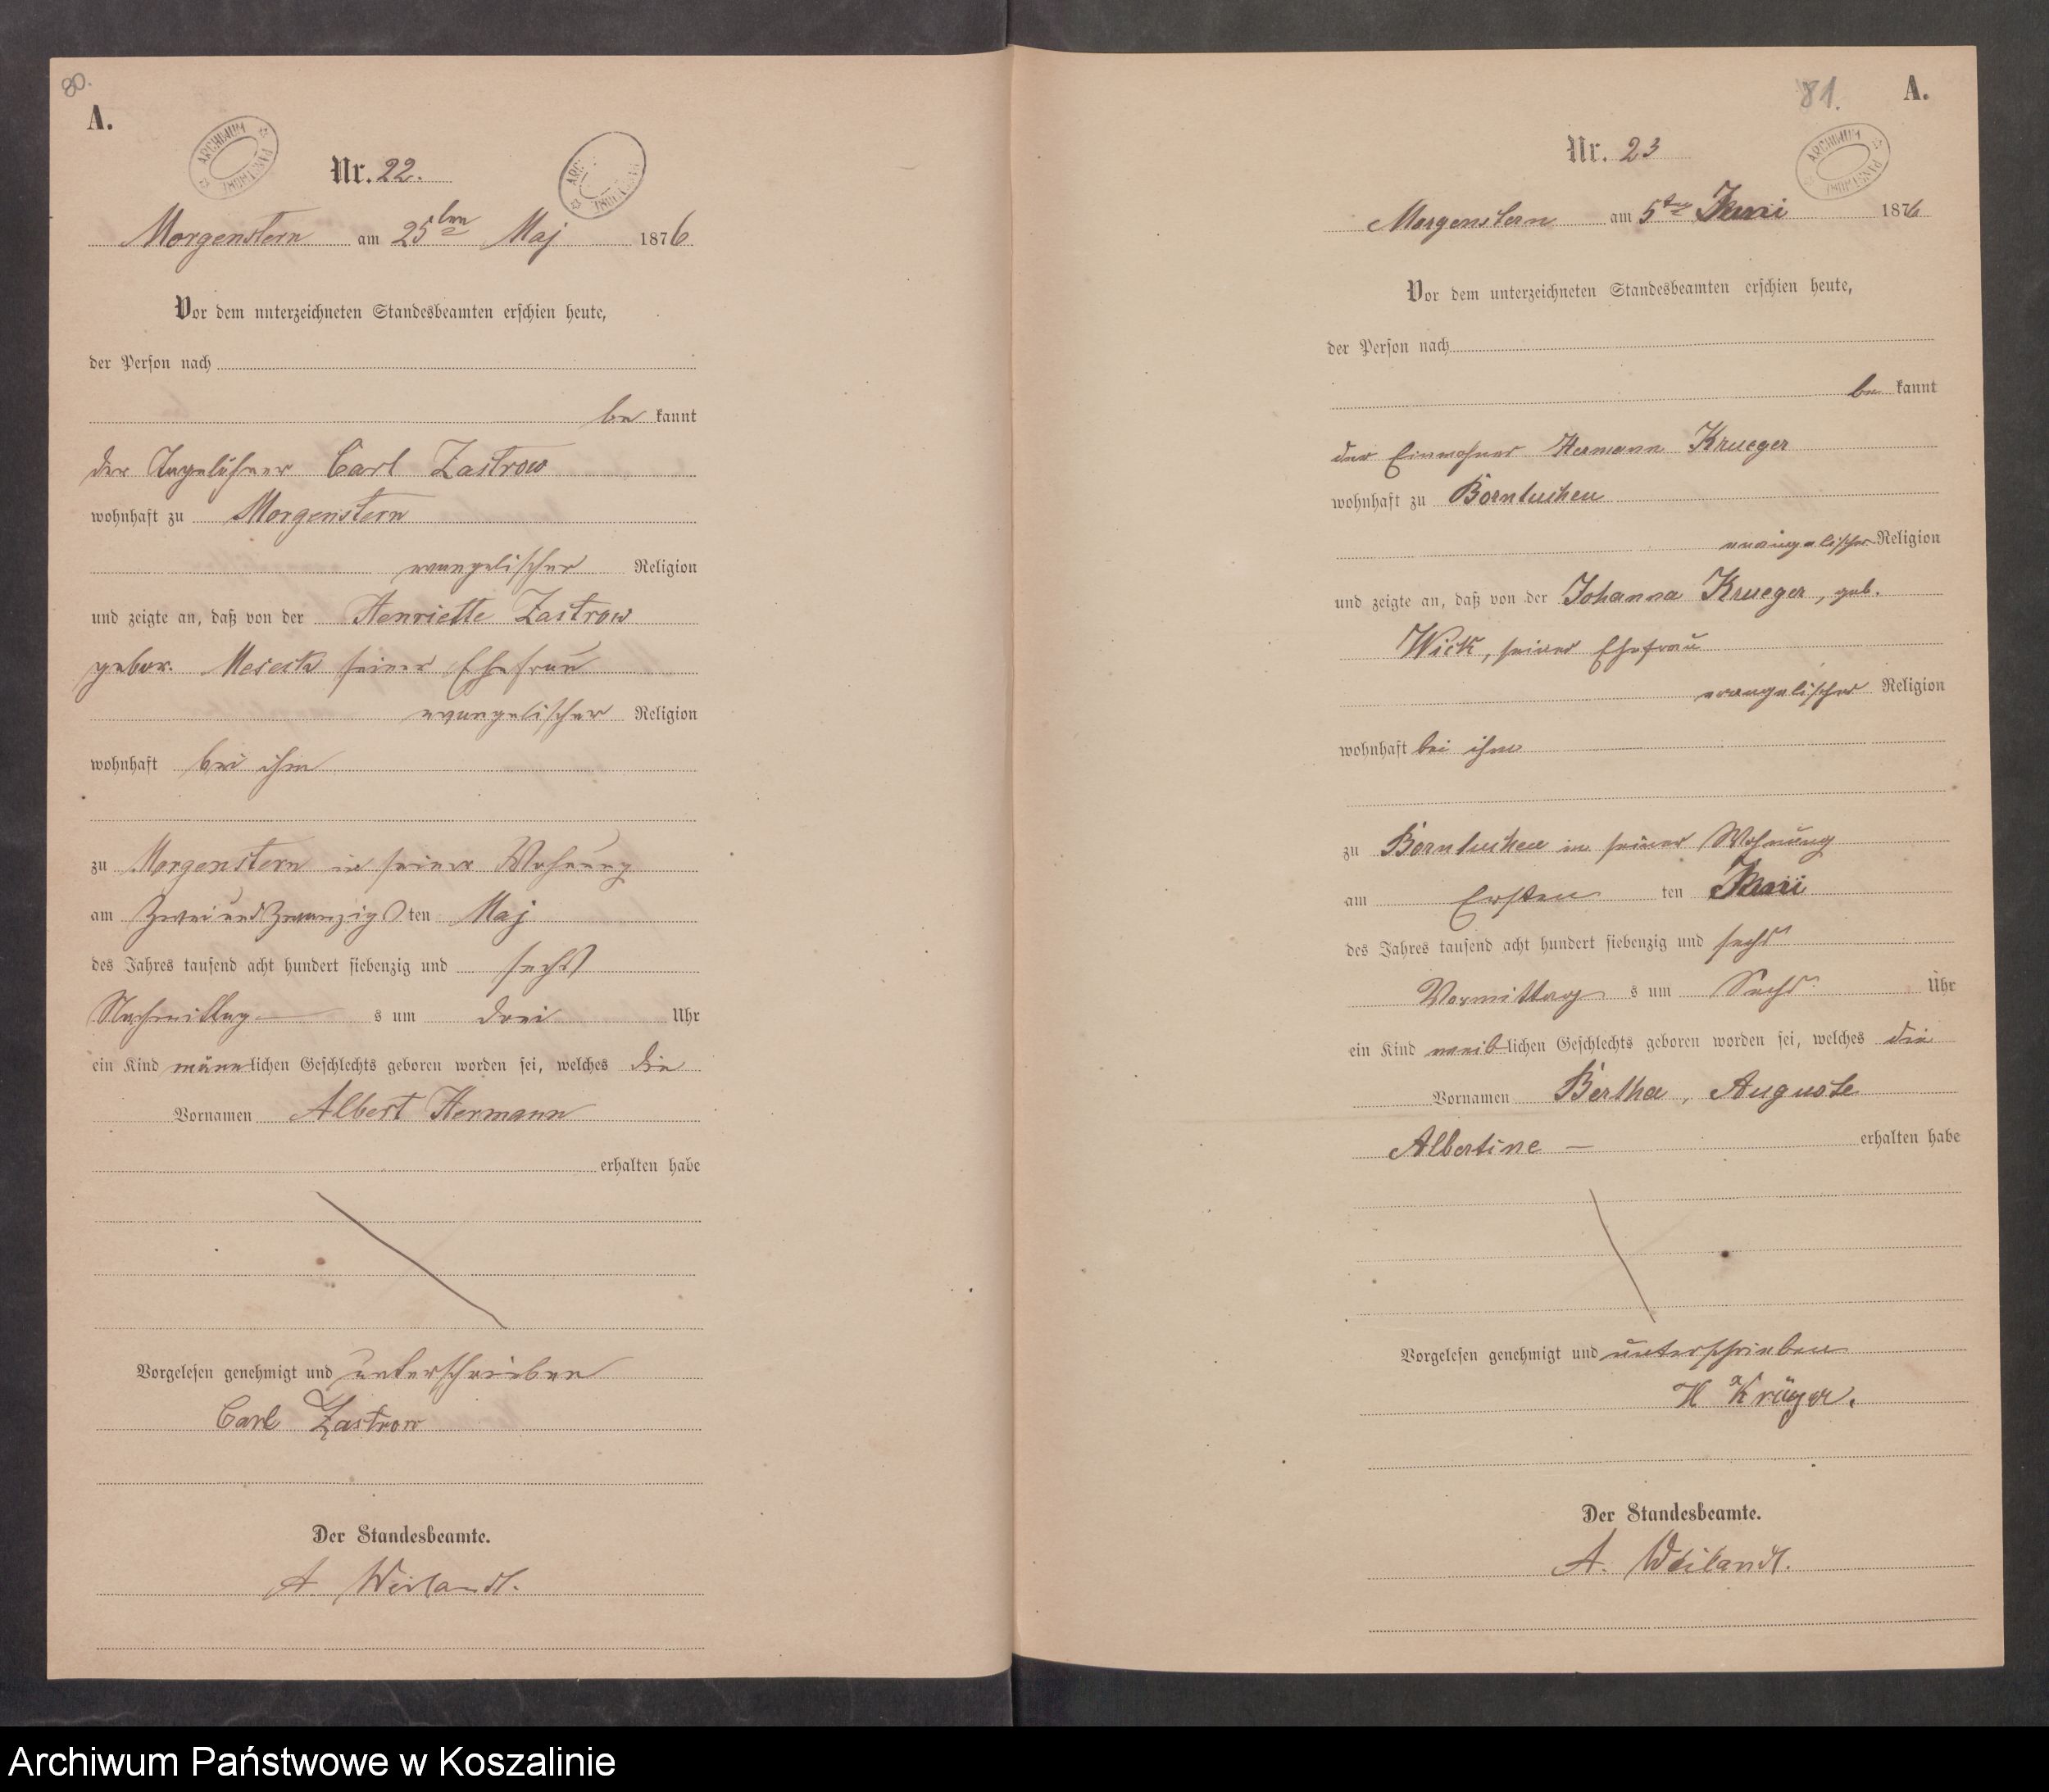 80.
A.
ARCHIWUM PAŃSTWOWE
Nr. 22.
Morgenstern am 25ten Maj 1876
Vor dem unterzeichneten Standesbeamten erschien heute,
der Person nach
be kannt
der Tagelöhner Carl Zastrow
wohnhaft zu Morgenstern
evangelischer Religion
und zeigte an, daß von der Henriette Zastrow
gebor. seiner Ehefrau
evangelischer Religion
wohnhaft bei ihm
zu Morgenstern in seiner Wohnung
am Zwei und Zwanzigs ten Maj
des Jahres tausend acht hundert siebenzig und sechs
Nachmittag s um drei Uhr
ein Kind männlichen Geschlechts geboren worden sei, welches die
Vornamen Albert Hermann
erhalten habe
Vorgelesen genehmigt und unterschrieben
Carl Zastrow
Der Standesbeamte.
A. Weilandt.
81.
A.
ARCHIWUM PAŃSTWOWE
Nr. 23
Morgenstern am 5ten Juni 1876
Vor dem unterzeichneten Standesbeamten erschien heute,
der Person nach
be kannt
der Einwohner Hermann Krueger
wohnhaft zu Borntuchen
evangelischer Religion
und zeigte an, daß von der Johanna Krueger, geb.
Wick, seiner Ehefrau
evangelischer Religion
wohnhaft bei ihm
zu Borntuchen in seiner Wohnung
am Ersten ten Juni
des Jahres tausend acht hundert siebenzig und sechs
Vormittag s um Sechs Uhr
ein Kind weiblichen Geschlechts geboren worden sei, welches die
Vornamen Bertha, Auguste
Albertine —
erhalten habe
Vorgelesen genehmigt und unterschrieben
H Krüger.
Der Standesbeamte.
A. Weilandt.
Archiwum Państwowe w Koszalinie